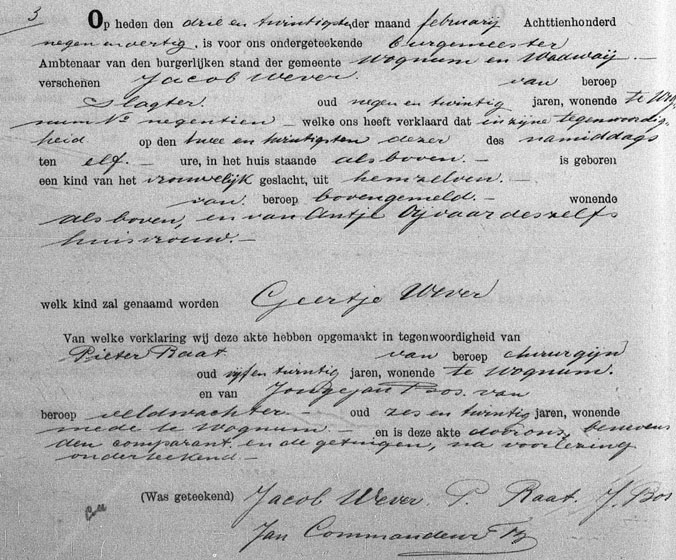 3
Op heden den drie en twintigste, der maand februarij Achttienhonderd
negen en veertig, is voor ons ondergeteekende burgemeester
Ambtenaar van den burgerlijken stand der gemeente Wognum en Wadwaij.—
verschenen Jacob Wever. van beroep
Slagter. oud negen en twintig jaren, wonende te Wog-
num No negentien — welke ons heeft verklaard dat in zijne tegenwoordig-
heid op den twee en twintigsten dezer des namiddags
ten elf.— ure, in het huis staande als boven.— is geboren
een kind van het vrouwelijk geslacht, uit hemzelven.—
van beroep bovengemeld.— wonende
als boven, en van Antje deszelfs
huisvrouw.—
welk kind zal genaamd worden Geertje Wever
Van welke verklaring wij deze akte hebben opgemaakt in tegenwoordigheid van
Pieter Raat van beroep chirurgijn
oud vijf en twintig jaren, wonende te Wognum.
en van Jongejan Bos. van
beroep veldwachter.— oud zes en twintig jaren, wonende
mede te Wognum.— en is deze akte door ons, benevens
den comparant en de getuigen, na voorlezing
onderteekend—
(Was geteekend) Jacob Wever. P. Raat. J. Bos
Jan Commandeur